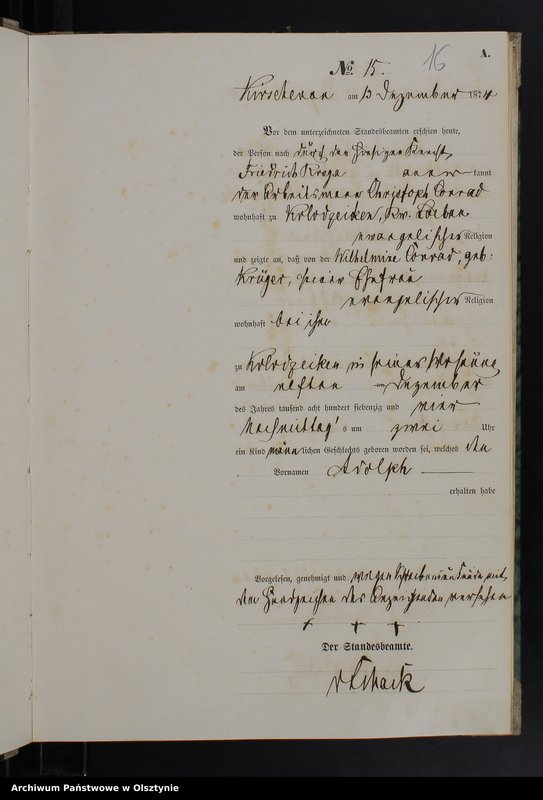 A.
16
No. 15.
am 13 Dezember 1874
Vor dem unterzeichneten Standesbeamten erschien heute,
der Person nach durch den hiesigen Knecht,
Friedrich Krega aner kannt
der Arbeitsmann Christoph Conrad
wohnhaft zu Kolodzeiken, Kr. Loeben
evangelischer Religion
und zeigte an, daß von der Wilhelmine Conrad, geb:
Krüger, seiner Ehefrau
evangelischer Religion
wohnhaft bei ihm
zu Kolodzeiken in seiner Wohnung
am elften Dezember
des Jahres tausend acht hundert siebenzig und vier
Nachmittag's um zwei Uhr
ein Kind männlichen Geschlechts geboren worden sei, welches den
Vornamen Adolph
erhalten habe
Vorgelesen, genehmigt und wegen Schreibensunkunde mit
den Handzeichen des Anzeigenden versehen
+ + +
Der Standesbeamte.
Archiwum Państwowe w Olsztynie